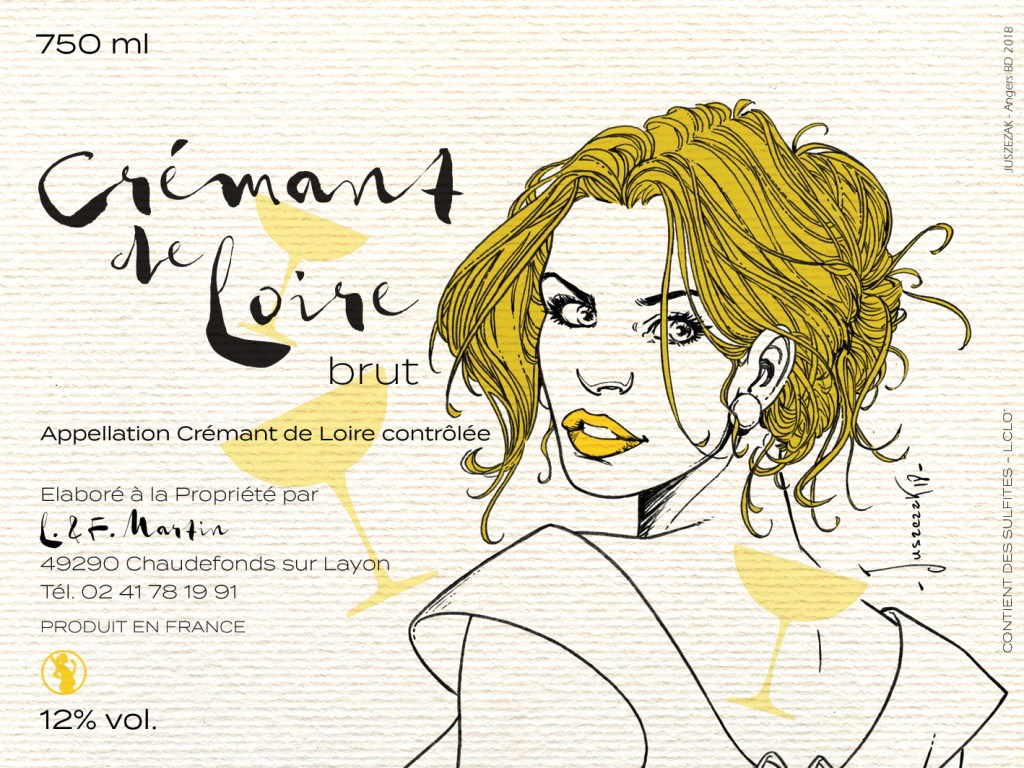 750 ml
Crémant
de
Loire
brut
Appellation Crémant de Loire contrôlée
Elaboré à la Propriété par
L. & F. Martin
49290 Chaudefonds sur Layon
Tél. 02 41 78 19 91
PRODUIT EN FRANCE
12% vol.
JUSZEZAK - Angers BD 2018
CONTIENT DES SULFITES - L.CLO